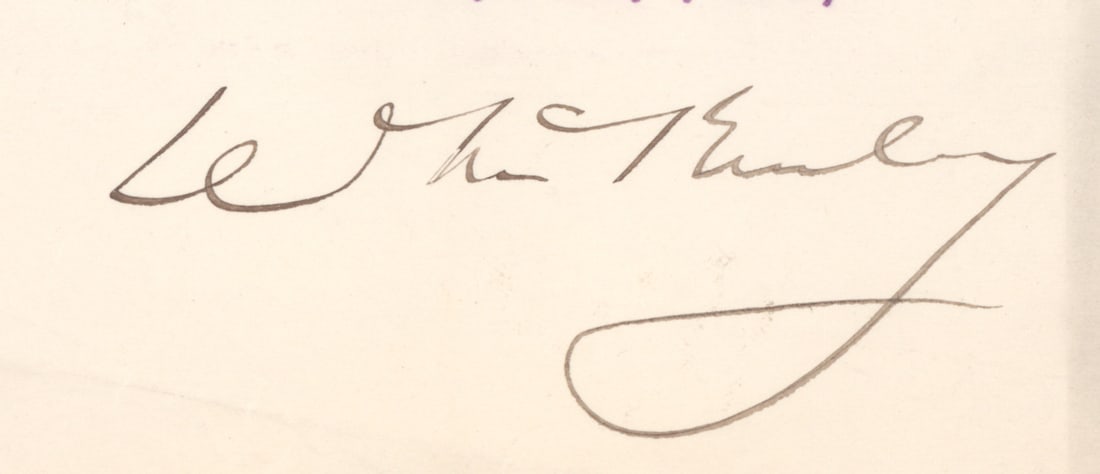 W McKinley